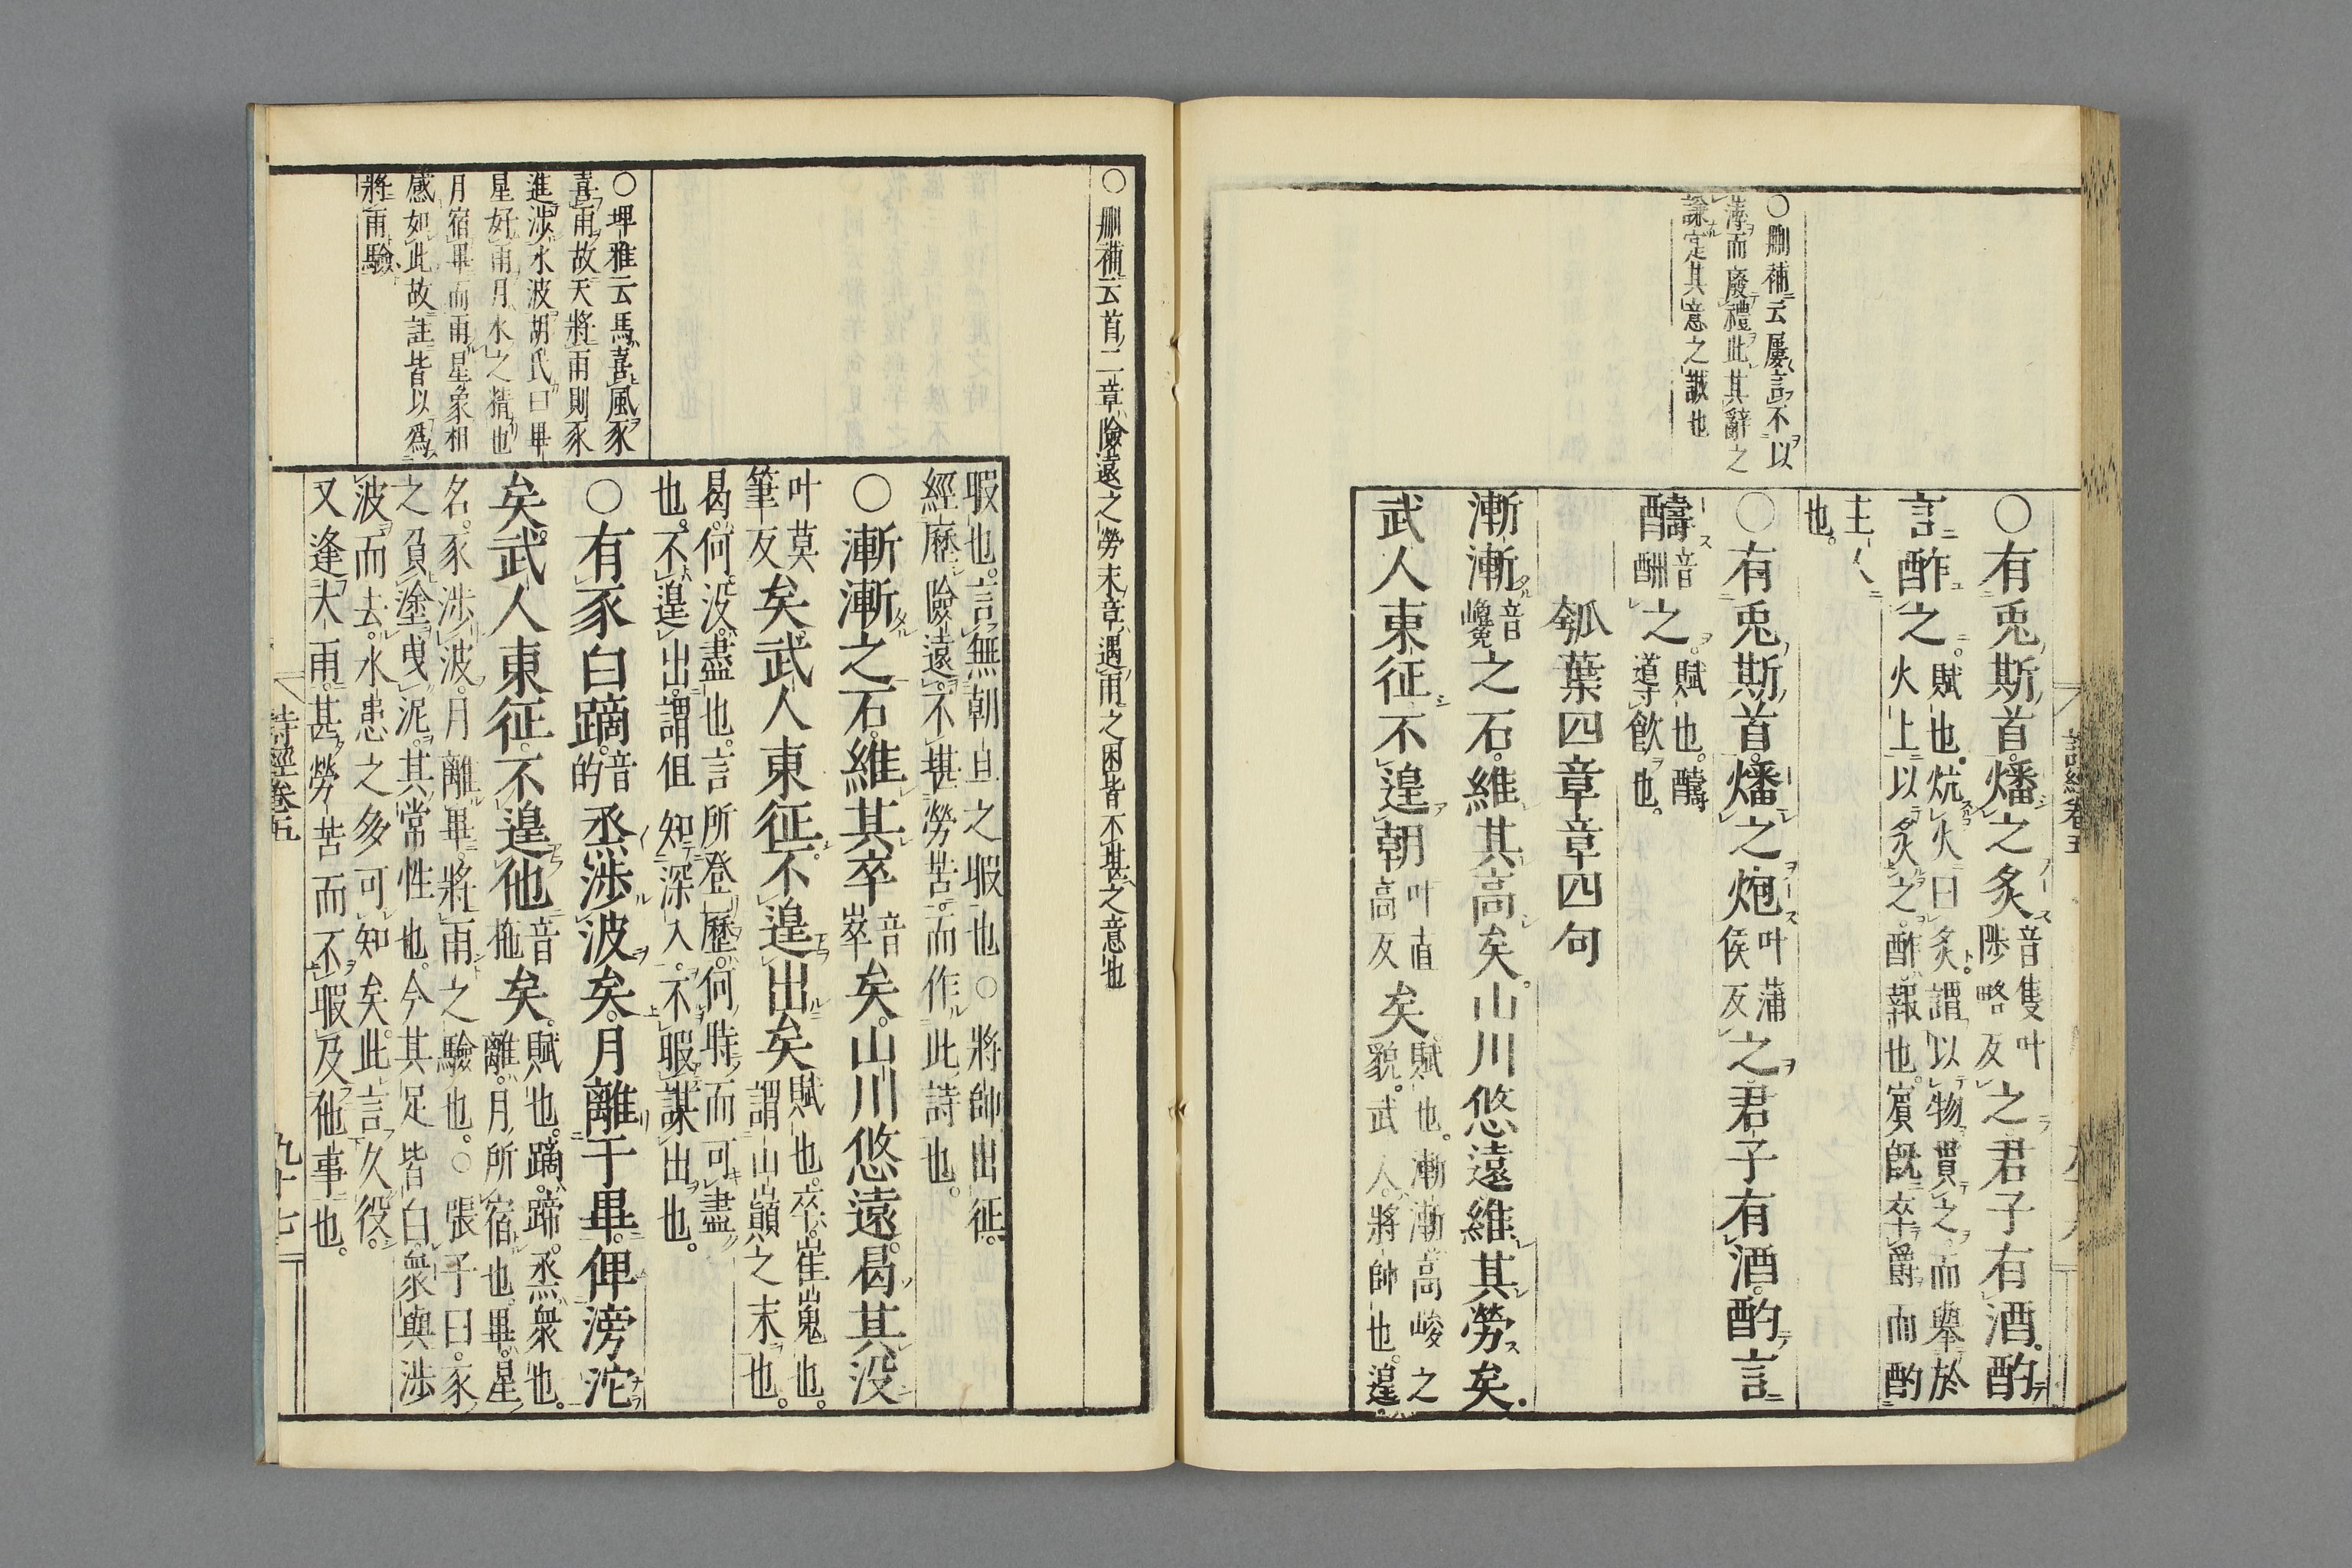 ○刪補云屢言不以
薄而廢禮此其辭之
謙定其意之誠也
○有兎斯首燔之炙音隻叶陟略反之君子有酒酌
言酢之賦也炕火曰炙謂以物貫之而舉於
火上以炙之酢報也賓既卒爵而酌
主人
也
○有兎斯首燔之炮叶蒲侯反之君子有酒酌言
醻音酬之賦也醻
導飲也
瓠葉四章章四句
漸漸音巉之石維其高矣山川悠遠維其勞矣
武人東征不遑朝叶直高反矣賦也漸漸高峻之
貌武人將帥也遑
○刪補云首二章險遠之勞末章遇雨之困皆不堪之意也
暇也言無朝旦之暇也○將帥出征
經歷險遠不堪勞苦而作此詩也
○漸漸之石維其卒音崒矣山川悠遠曷其没
叶莫筆反矣武人東征不遑出矣賦也卒崔嵬也
謂山巓之末也
曷何没盡也言所登歷何時而可盡
也不遑出謂伹知深入不暇謀出也
○有豕白蹢音的烝涉波矣月離于畢俾滂沱
矣武人東征不遑他音拖矣賦也蹢蹄烝衆也
離月所宿也畢星
名豕涉波月離畢將雨之驗也○張子曰豕
之負塗曳泥其常性也今其足皆白衆與涉
波而去水患之多可知矣此言久役
又逢大雨甚勞苦而不暇及他事也
○埤雅云馬喜風豕
喜雨故天將雨則豕
進涉水波胡氏曰畢
星好雨月水之精也
月宿畢而雨星象相
感如此故註皆以爲
將雨驗
詩經卷五
九十七